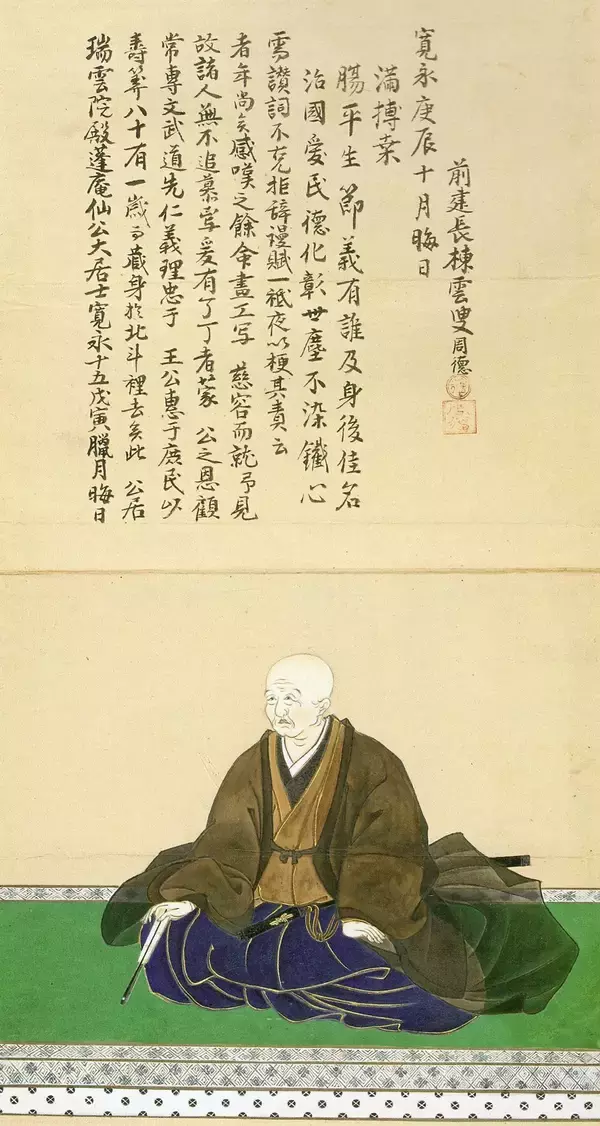 瑞雲院殿蓬庵仙公大居士寛永十五戊寅臘月晦日
壽筭八十有一歳而蔵身於北斗裡去矣此 公居
常専文武道先仁義理忠于 王公惠于庶民以
故諸人無不追慕焉爰有了丁者蒙 公之恩顧
者年尚矣感嘆之餘命畫工写 慈容而就予見
需讃詞不克拒辞謾賦一祇夜以梗其責云
治國愛民德化彰世塵不染鐵心
膓平生節義有誰及身後佳名
満搏桒
寛永庚辰十月晦日
前建長棟雲叟周德